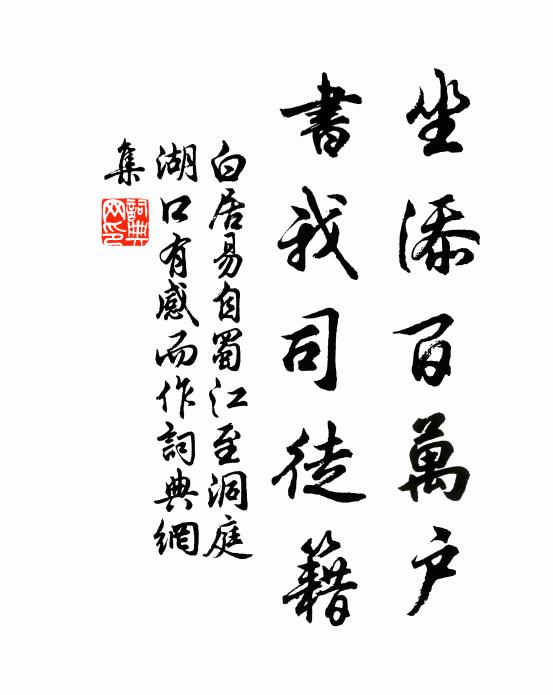 坐添百萬户
書我司徒籍
白居易自蜀江至洞庭
湖口有感而作詞典網
集
詞典网印